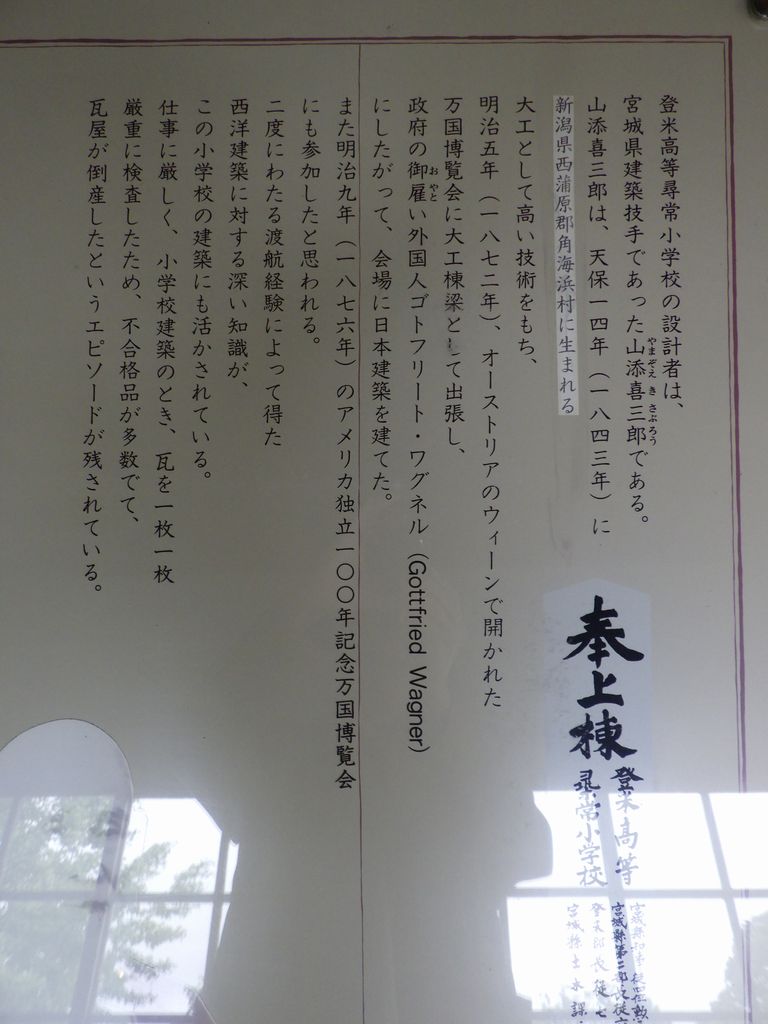 登米高等尋常小学校の設計者は、
宮城県建築技手であった山添喜三郎である。
やまぞえ き さぶろう
山添喜三郎は、天保一四年（一八四三年）に
新潟県西蒲原郡角海浜村に生まれる
大工として高い技術をもち、
明治五年（一八七二年）、オーストリアのウィーンで開かれた
万国博覧会に大工棟梁として出張し、
政府の御雇い外国人ゴトフリート・ワグネル（Gottfried Wagner）
お やと
にしたがって、会場に日本建築を建てた。
また明治九年（一八七六年）のアメリカ独立一〇〇年記念万国博覧会
にも参加したと思われる。
二度にわたる渡航経験によって得た
西洋建築に対する深い知識が、
この小学校の建築にも活かされている。
仕事に厳しく、小学校建築のとき、瓦を一枚一枚
厳重に検査したため、不合格品が多数でて、
瓦屋が倒産したというエピソードが残されている。
奉上棟
登米高等
尋常小学校